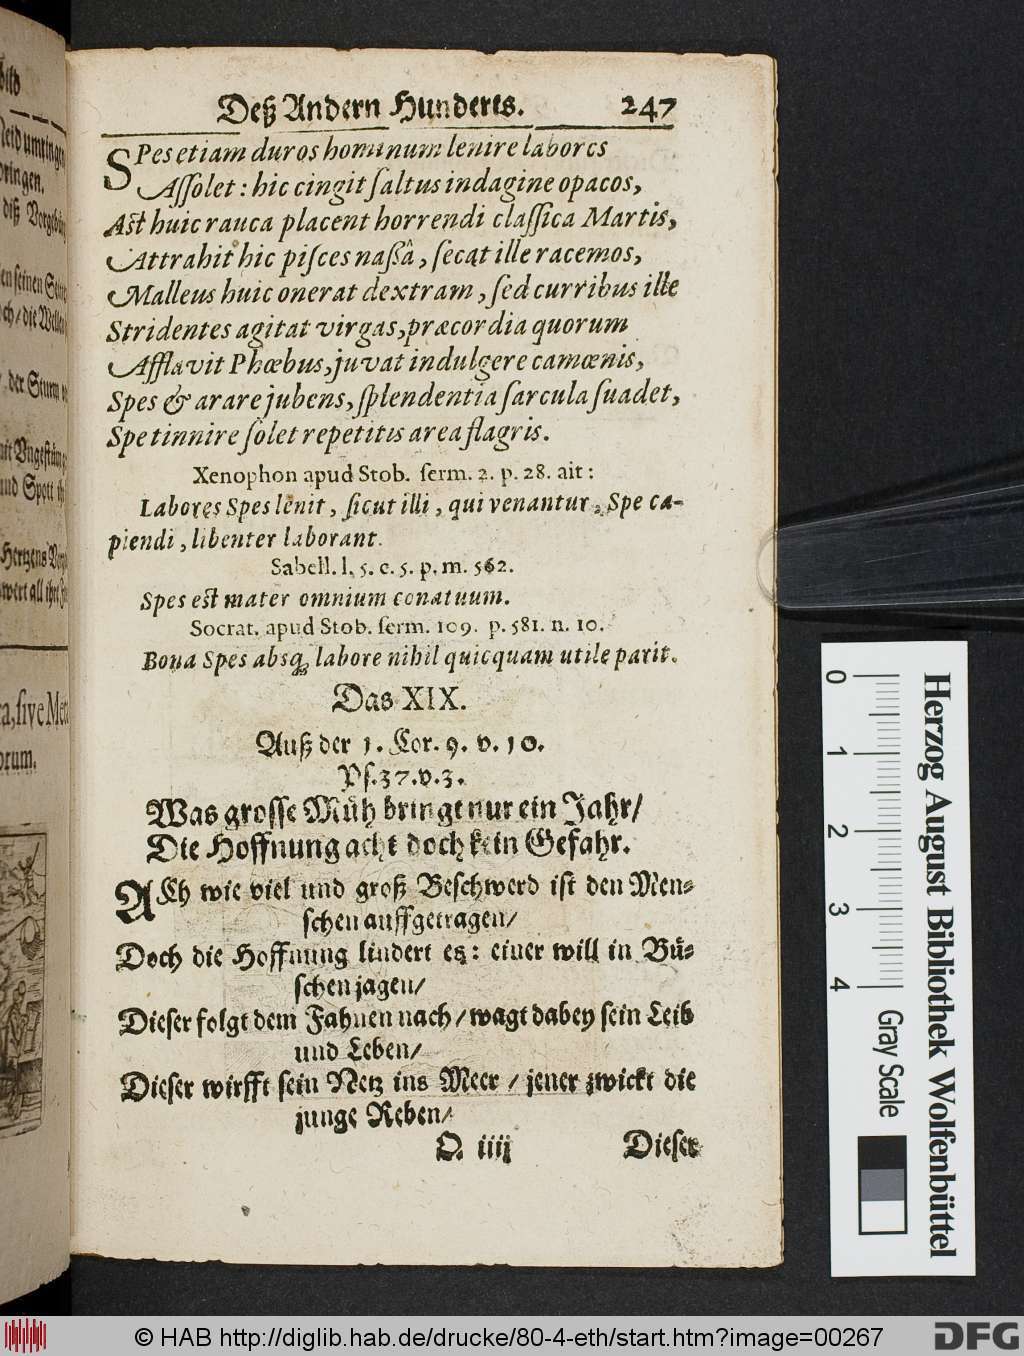 Deß Andern Hunderts. 247
SPes etiam duros hominum lenire labores
Aſſolet: hic cingit ſaltus indagine opacos,
Aſt huic rauca placent horrendi claſſica Martis,
Attrahit hic piſces naßâ, ſecat ille racemos,
Malleus huic onerat dextram, ſed curribus ille
Stridentes agitat virgas, præcordia quorum
Afflavit Phœbus, juvat indulgere camœnis,
Spes & arare jubens, ſplendentia ſarcula ſuadet,
Spe tinnire ſolet repetitis area flagris.
Xenophon apud Stob. ſerm. 2. p. 28. ait:
Labores Spes lenit, ſicut illi, qui venantur, Spe ca-
piendi, libenter laborant.
Sabell. l. 5. c. 5. p. m. 562.
Spes eſt mater omnium conatuum.
Socrat. apud Stob. ſerm. 109. p. 581. n. 10.
Bona Spes absq; labore nihil quicquam utile parit.
Das XIX.
Auß der 1. Cor. 9. v. 10.
Pſ. 37. v. 3.
Was groſſe Müh bringt nur ein Jahr/
Die Hoffnung acht doch kein Gefahr.
ACh wie viel und groß Beſchwerd iſt den Men-
ſchen auffgetragen/
Doch die Hoffnung lindert es: einer will in Bü-
ſchen jagen/
Dieſer folgt dem Fahnen nach/ wagt dabey ſein Leib
und Leben/
Dieſer wirfft ſein Netz ins Meer/ jener zwickt die
junge Reben/
Q iiij Dieſer
bild
Neid umringen
bringen.
diß Vorgebürg
der Sturm
mit Ungeſtüm
und Spott
Hertzens
wert all ihre
ra, ſive Meta
orum.
0 1 2 3 4
Gray Scale
Herzog August Bibliothek Wolfenbüttel
© HAB http://diglib.hab.de/drucke/80-4-eth/start.htm?image=00267
DFG